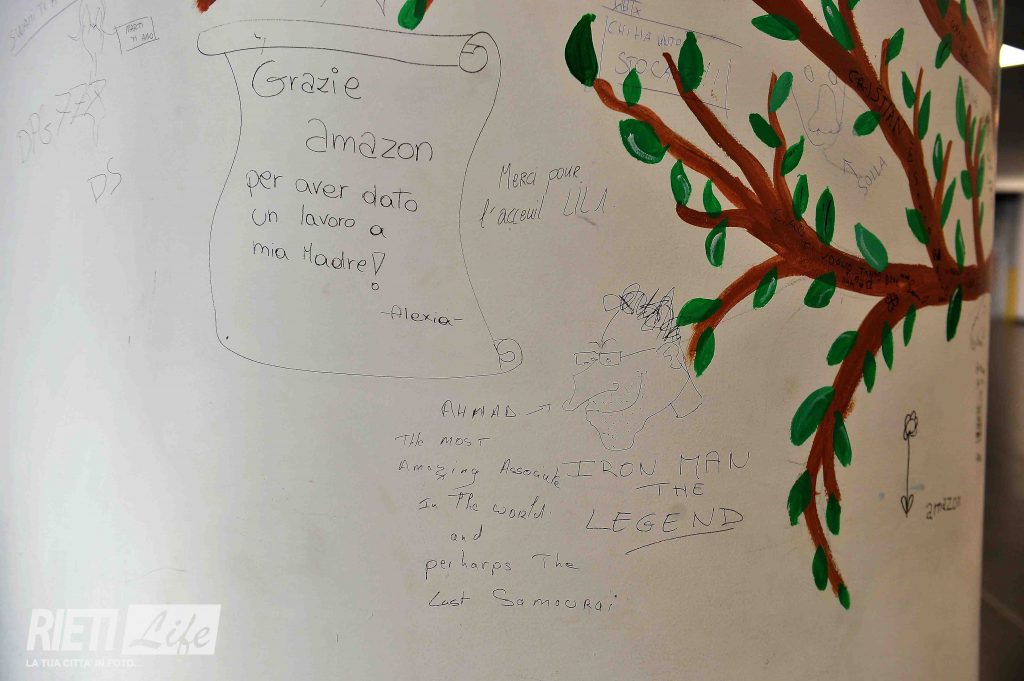 MARTI
TI AMO
DPs 77X
DS
Grazie
amazon
per aver dato
un lavoro a
mia Madre!
-Alexia-
Merci pour
l'acceuil LILI
SOULA
AHMAD
The most
Amazing Associate
In the world
and
perharps The
Last Samourai
IRON MAN
THE
LEGEND
amazon
RIETI Life
LA TUA CITTA' IN FOTO...